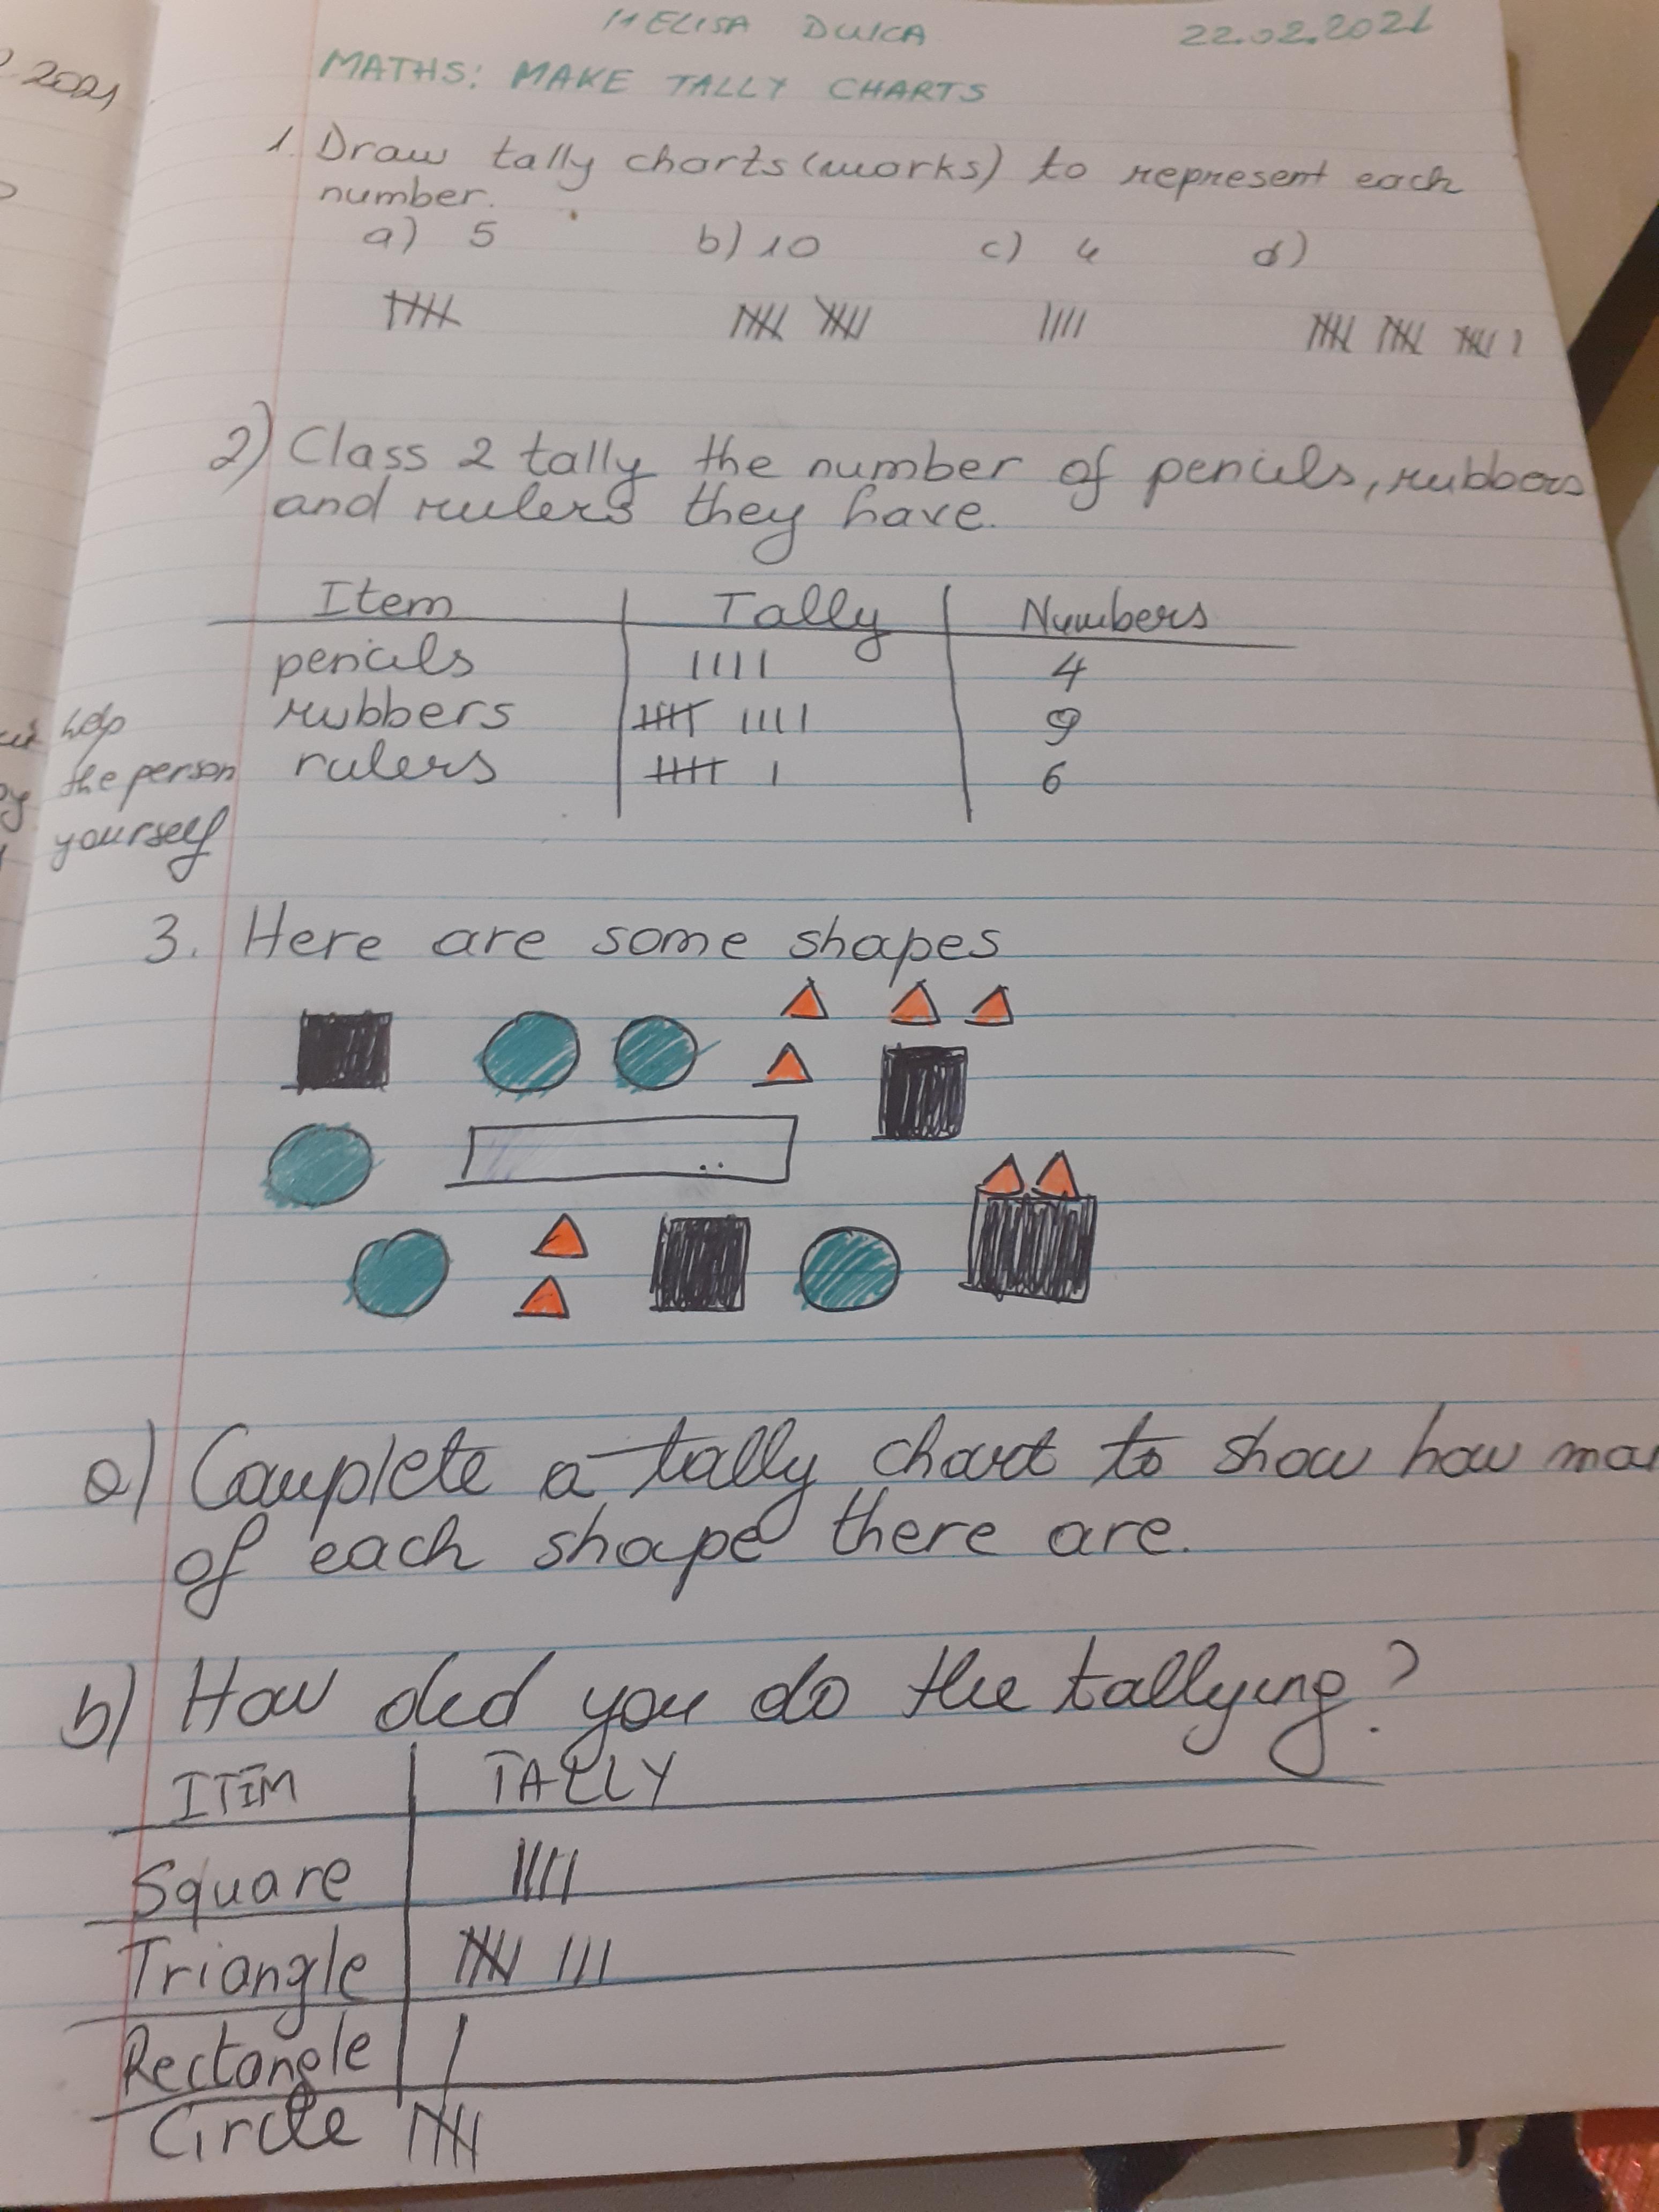 2021
MELISA DUKA 22.02.2021
MATHS: MAKE TALLY CHARTS
1. Draw tally charts (works) to represent each
number.
a) 5 b) 10 c) 4 d)
2) Class 2 tally the number of pencils, rubbers
and rulers they have.
Item Tally Numbers
pencils |||| 4
rubbers |||| |||| 9
rulers |||| | 6
help
the person
yourself
3. Here are some shapes
a) Complete a tally chart to show how mo
of each shape there are.
b) How did you do the tallying?
ITIM TALLY
Square ||||
Triangle |||| |||
Rectangle |
Circle ||||